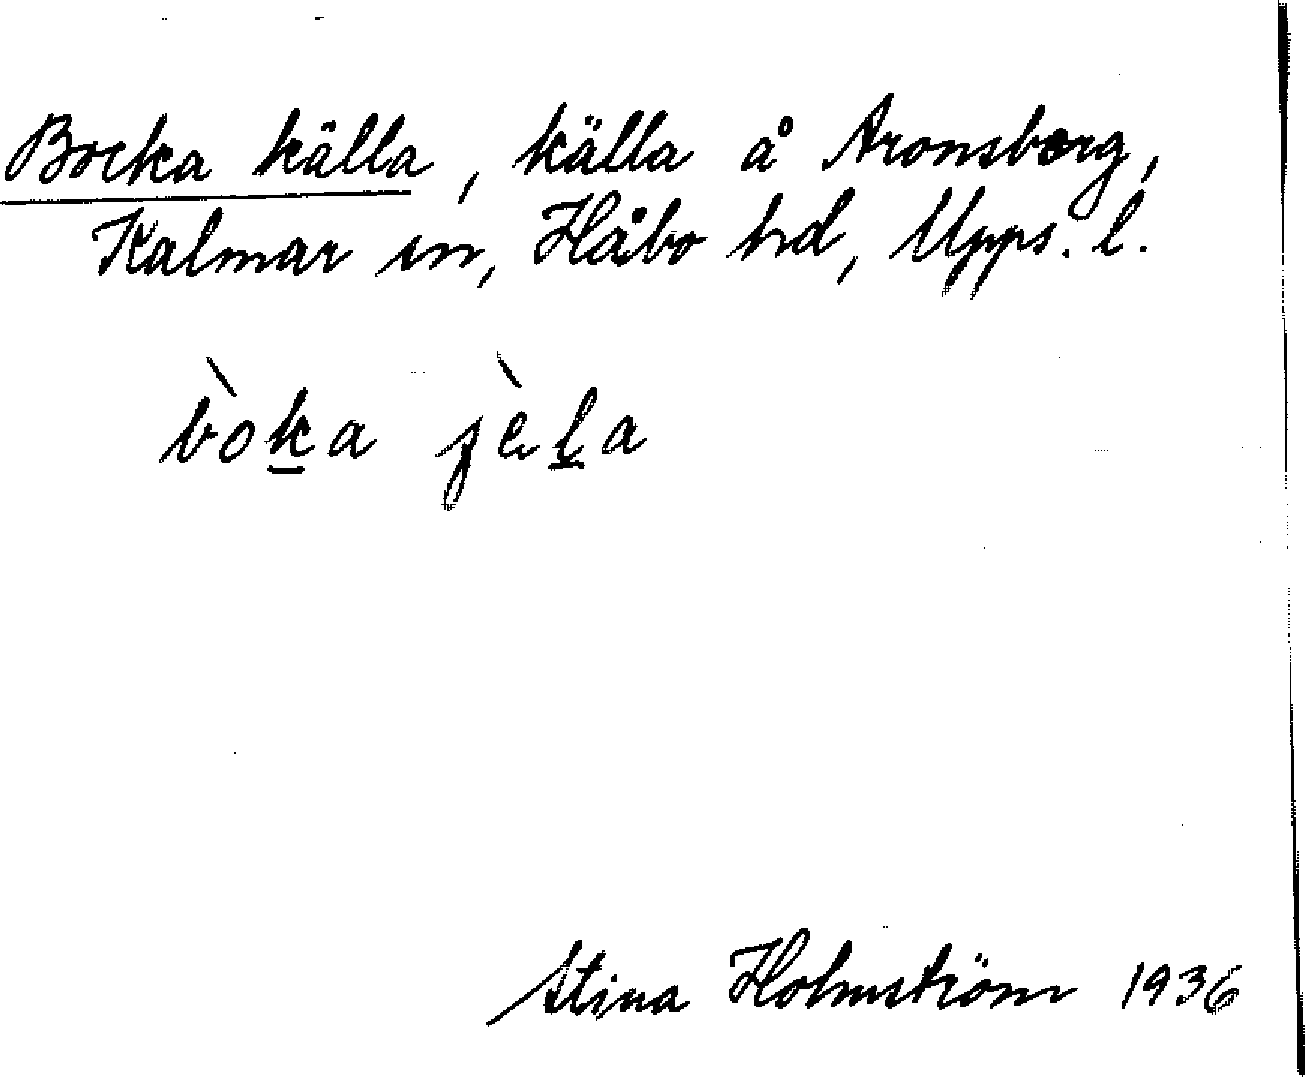 Bocka källa, källa å Aronsberg,
Kalmar sn, Håbo hd, Upps. l.
bòḵa ɟèḻa
Stina Holmström 1936